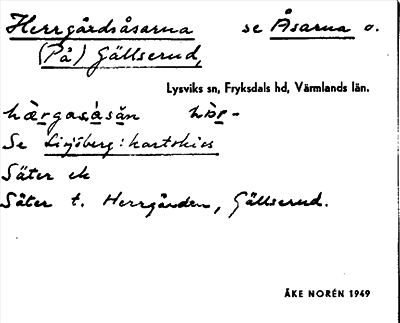 Herrgårdsåsarna se Åsarna o.
(På) Gällserud,
Lysviks sn, Fryksdals hd, Värmlands län.
hærgasåsăn
Se : kartskiss
Säter ek
Säter t. Herrgården, Gällserud.
ÅKE NORÉN 1949